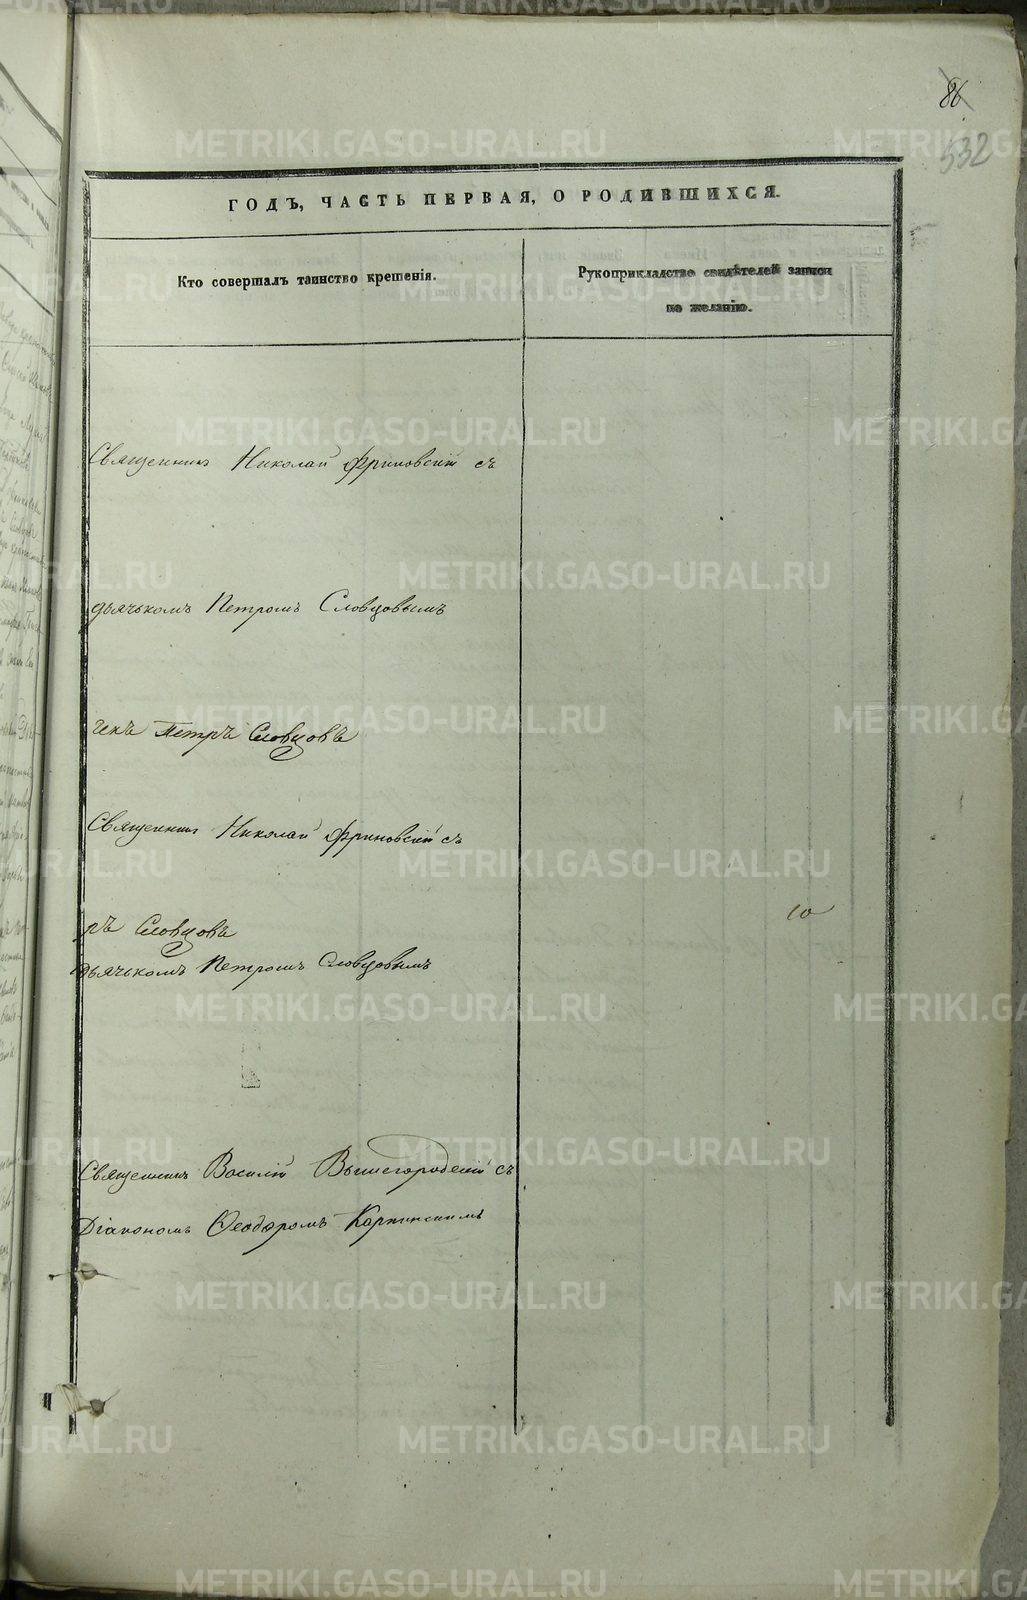 86
532
ГОДЪ, ЧАСТЬ ПЕРВАЯ, О РОДИВШИХСЯ.
Кто совершалъ таинство крещенія.
Рукоприкладство свидѣтелей записи
по желанію.
Священникъ Николай Фриновскій съ
дьячькомъ Петромъ Словцовымъ
чекъ Петръ Словцовъ
Священникъ Николай Фриновскій съ
ръ Словцовъ
дьячькомъ Петромъ Словцовымъ
Священникъ Василій Вышегородскій съ
Діакономъ Ѳеодоромъ Карпинскимъ
METRIKI.GASO-URAL.RU